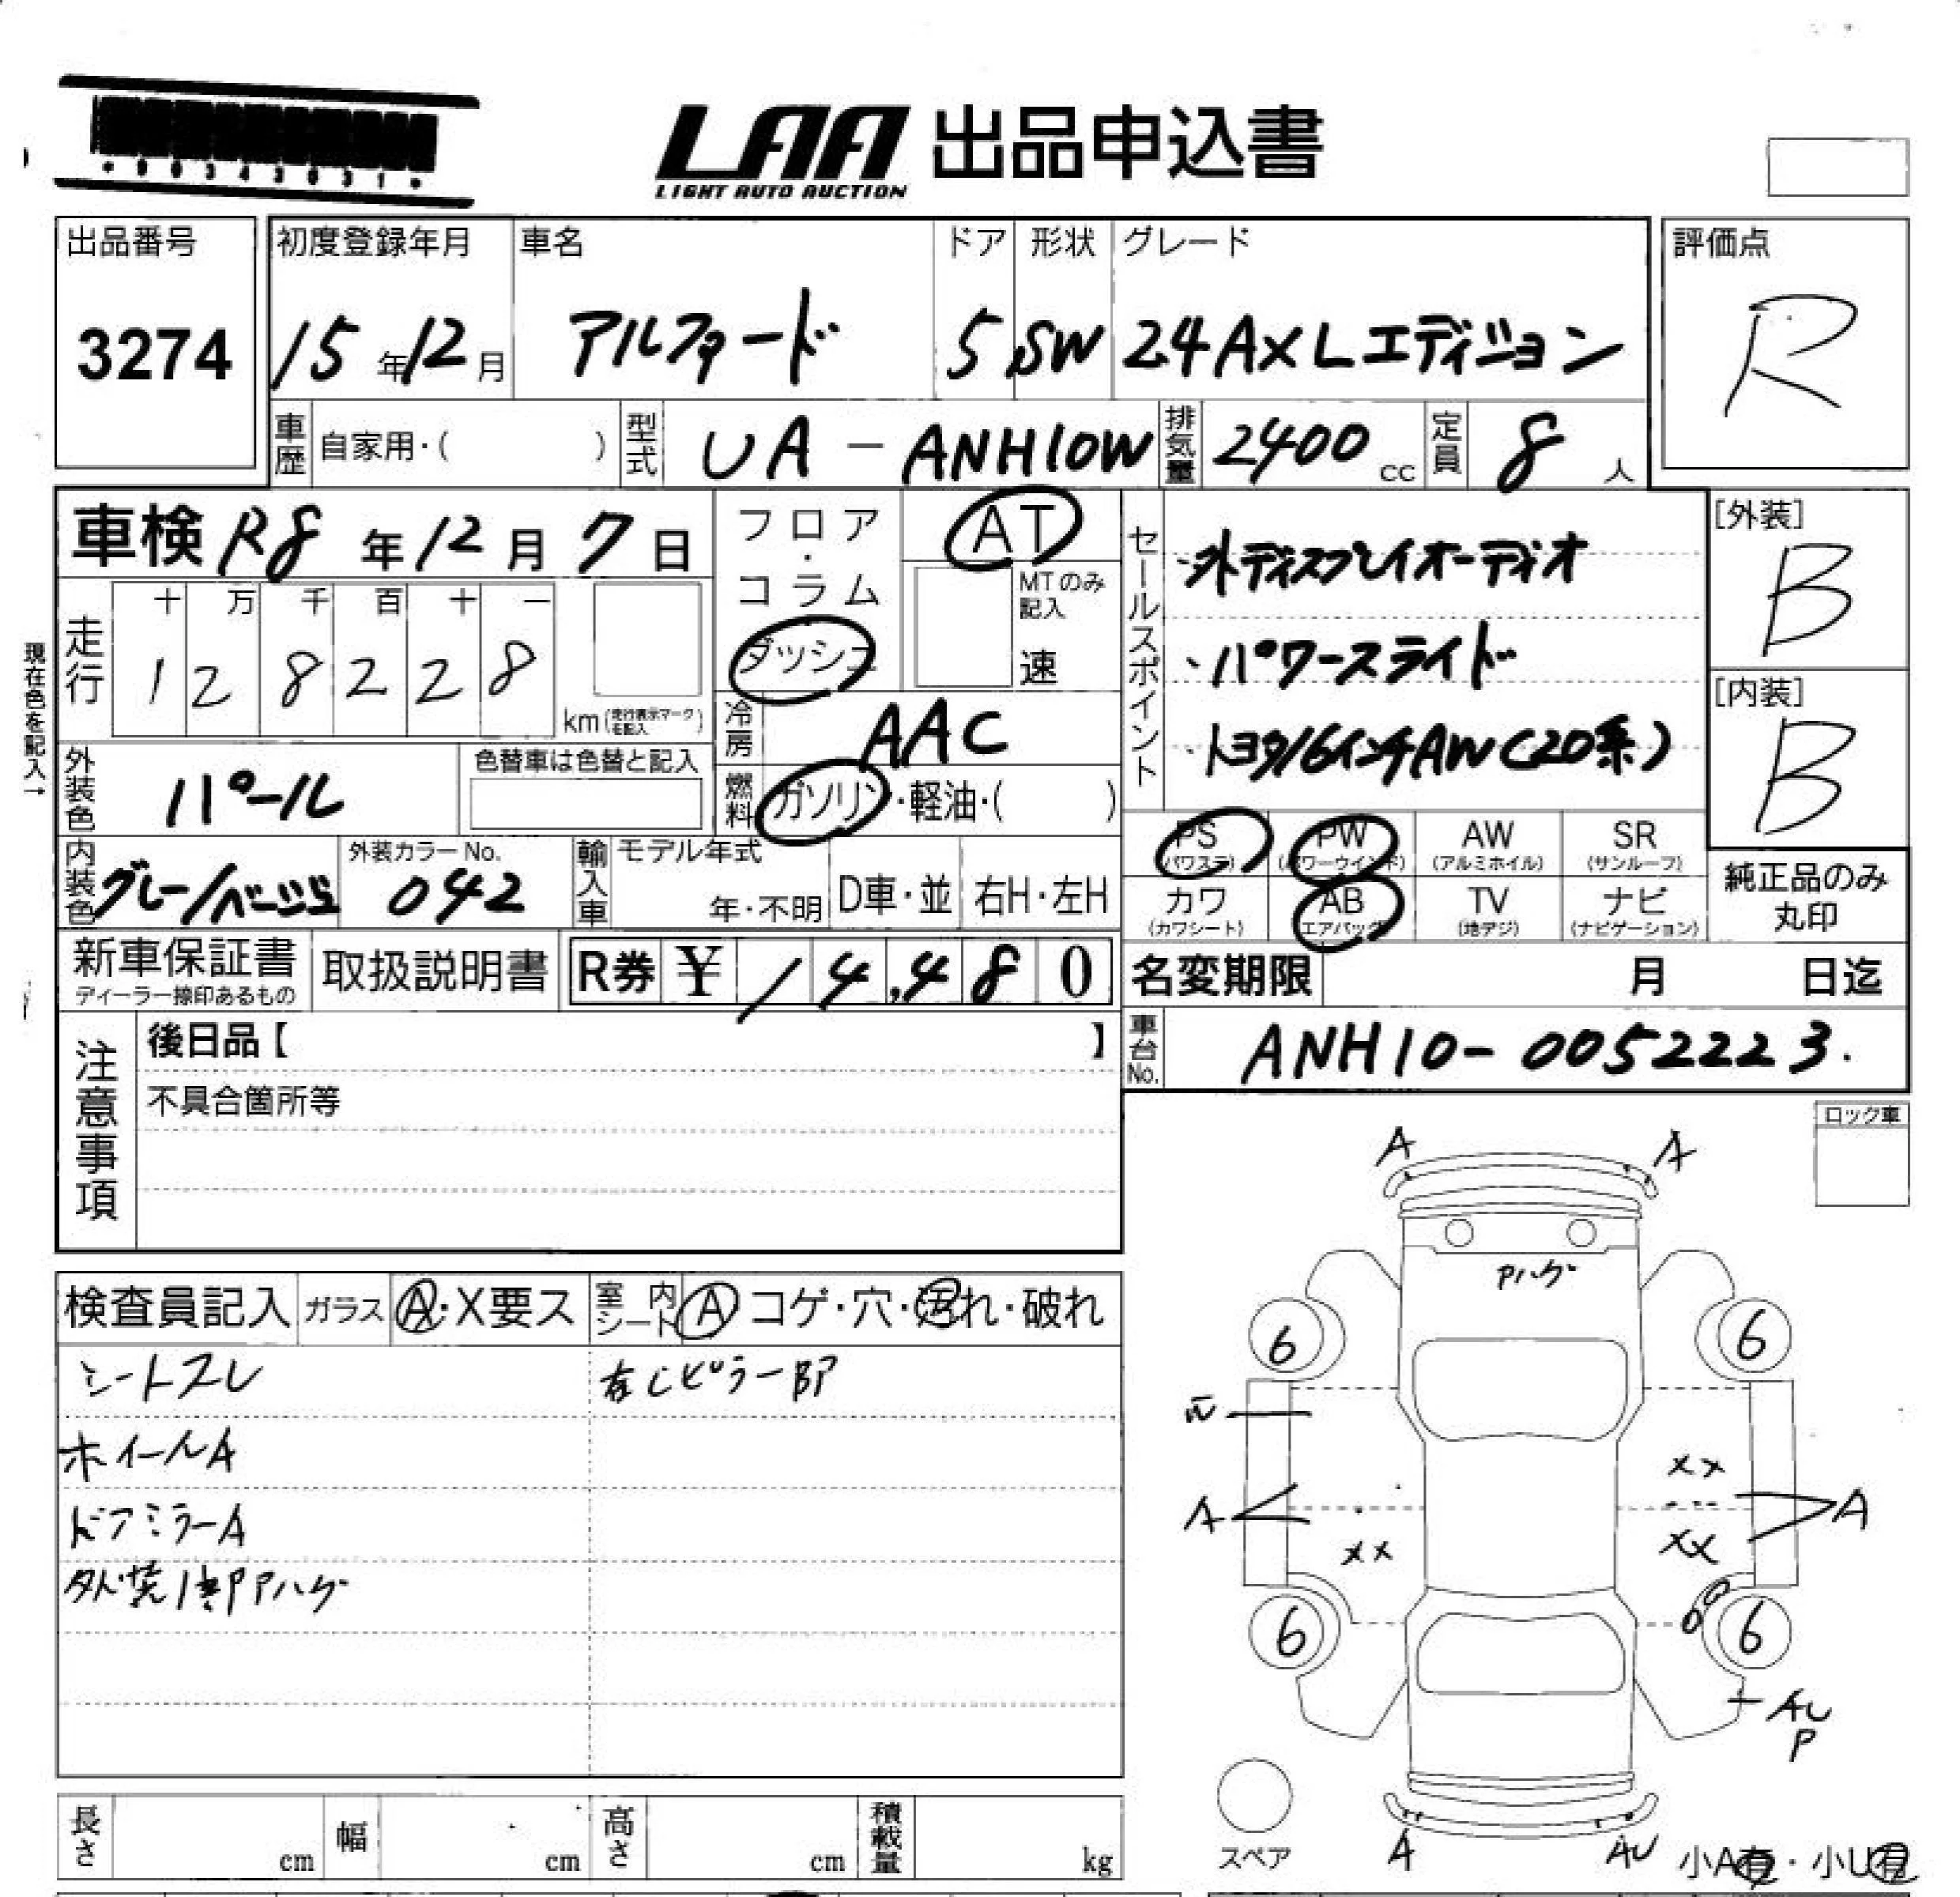 ・00343031・
LAA 出品申込書
LIGHT AUTO AUCTION
出品番号 3274
初度登録年月 15年12月
車名 アルファード
ドア 5
形状 SW
グレード 24AXLエディション
評価点 R
車歴 自家用・( )
型式 UA-ANH10W
排気量 2400cc
定員 8人
車検 R8年12月7日
フロア・コラム
ダッシュ
AT
MTのみ記入
速
走行 十 万 千 百 十 一
1 2 8 2 2 8 km(走行表示マークを記入)
現在色を記入→
外装色 パール
色替車は色替と記入
冷房 AAC
燃料 ガソリン・軽油・( )
内装色 グレー/ベージュ
外装カラーNo. 042
輸入車 モデル年式
年・不明 D車・並 右H・左H
新車保証書
ディーラー捺印あるもの
取扱説明書
R券 ¥ 14,480
セールスポイント
・外ディスプレイオーディオ
・パワースライド
・トヨタ16インチAW(20系)
[外装] B
[内装] B
PS (パワステ) PW (パワーウインド) AW (アルミホイル) SR (サンルーフ)
カワ (カワシート) AB (エアバック) TV (地デジ) ナビ (ナビゲーション)
純正品のみ
丸印
名変期限 月 日迄
車台No. ANH10-0052223.
注意事項
後日品【 】
不具合箇所等
ロック車
検査員記入 ガラス A・X要ス 室内シート A コゲ・穴・汚れ・破れ
シートスレ 右Cピラー部P
ホイールA
ドアミラーA
外装1部Pハゲ
A A
Pハゲ
6 6
XX
A A
XX XX
6 6
AU
P
A AU
スペア
小A有・小U有
長さ cm 幅 cm 高さ cm 積載量 kg